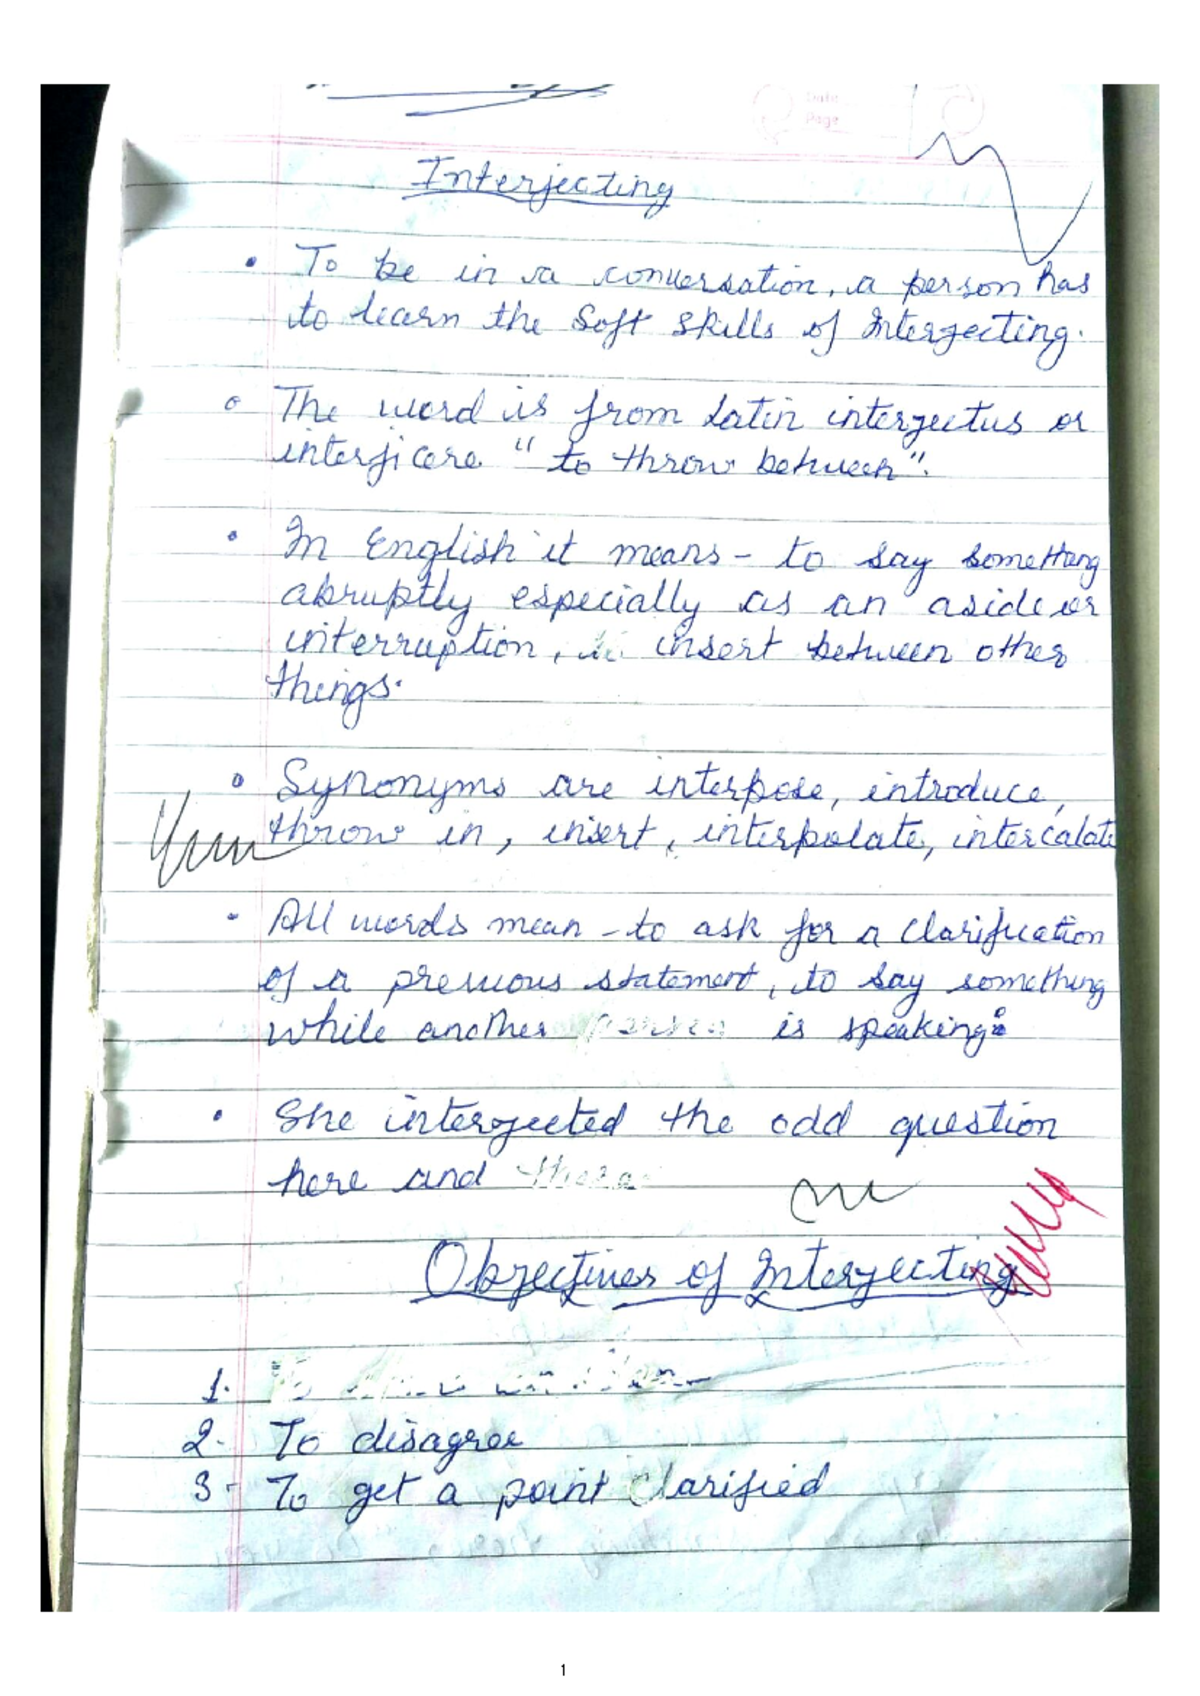 Date
Page
Interjecting
• To be in a conversation, a person has
to learn the Soft Skills of Interjecting.
• The word is from Latin interjectus or
interjicere "to throw between".
• In English it means - to say something
abruptly especially as an aside or
interruption, insert between other
things.
• Synonyms are interpose, introduce,
throw in, insert, interpolate, intercalate
• All words mean - to ask for a clarification
of a previous statement, to say something
while another person is speaking.
• She interjected the odd question
here and there
Objectives of Interjecting
1.
2. To disagree
3- To get a point clarified
1